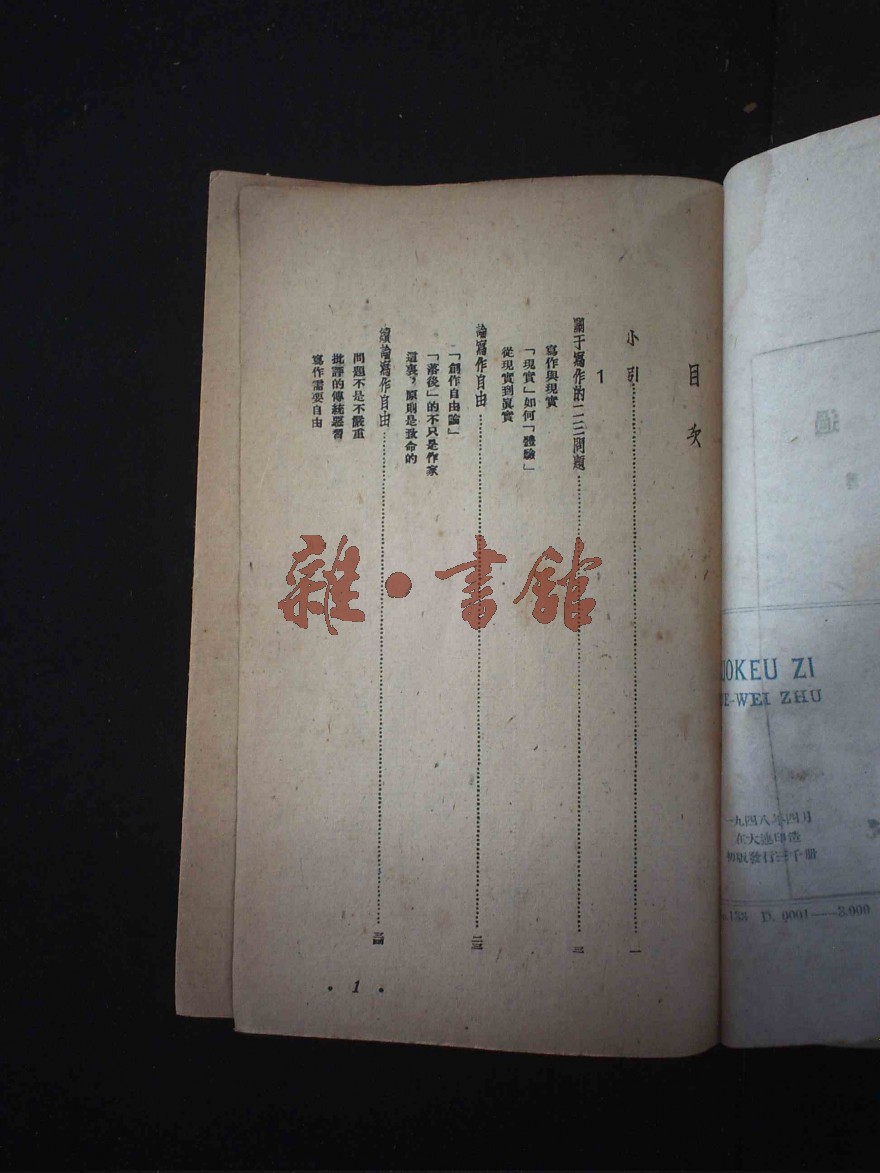 目次
小引……一
1
關于寫作的二三問題……三
寫作與現實
「現實」如何「體驗」
從現實到眞實
論寫作自由……二三
「創作自由論」
「落後」的不只是作家
這裏，原則是致命的
續論寫作自由……三四
問題不是不嚴重
批評的傳統惡習
寫作需要自由
• 1 •
雜•書館
OKEU ZI
E-WEI ZHU
一九四八年四月
在大連印造
初版發行三千册
.133 D. 0001——3.000